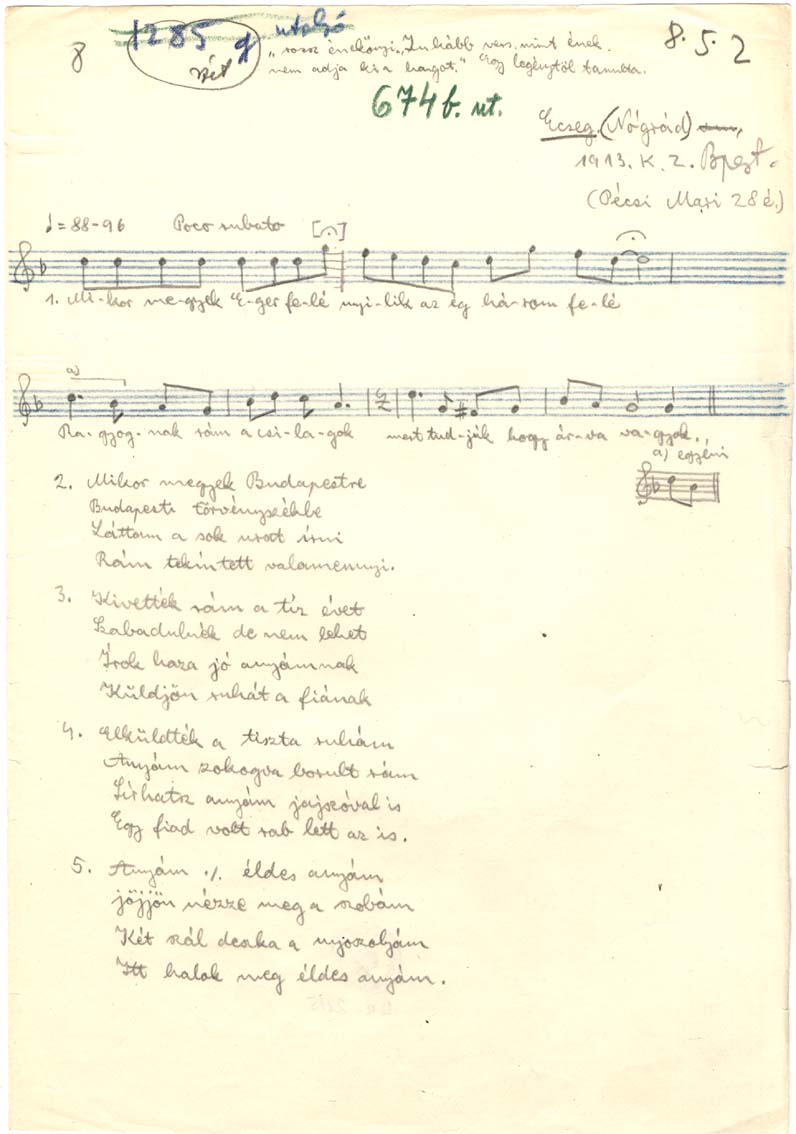 8
1285 g utolsó
„rossz énekőnyi. „Inkább vers, mint ének.
nem adja ki a hangot." Egy legénytől tanulta.
8.5.2
674 b. ut.
Ecseg. (Nógrád)
1913. K. Z. Bpest.
(Pécsi Mari 28 é.)
♩=88-96 Poco rubato
1. Mi-kor me-gyek E-ger fe-lé nyi-lik az ég há-rom fe-lé
a)
Ra-gyog-nak rám a csi-la-gok mert tud-ják hogy ár-va va-gyok.
a) egyéni
2. Mikor megyek Budapestre
Budapesti törvényszékbe
Láttam a sok urat írni
Rám tekintett valamennyi.
3. Kivették rám a tíz évet
Szabadulnék de nem lehet
Írok haza jó anyámnak
Küldjön ruhát a fiának
4. Elküldték a tiszta ruhám
Anyám zokogva borult rám
Sírhatsz anyám jajszóval is
Egy fiad volt rab lett az is.
5. Anyám ./. éldes anyám
jőjjön nézze meg a szobám
Két szál deszka a nyoszolyám
Itt halok meg éldes anyám.